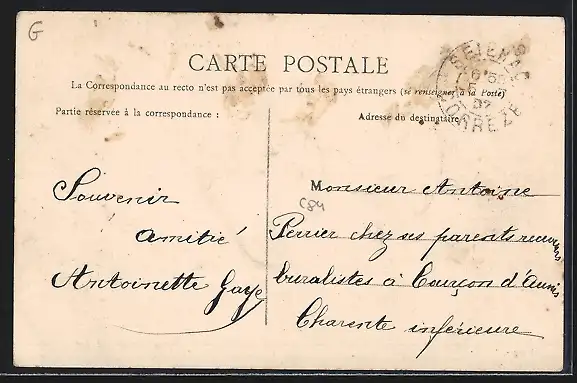 G
CARTE POSTALE
La Correspondance au recto n'est pas acceptée par tous les pays étrangers (se renseigner à la Poste)
Partie réservée à la correspondance :
Adresse du destinataire
SEILHAC
07
CORREZE
Souvenir
amitié
Antoinette Gaye
C84
Monsieur Antoine
Perrier chez ses parents receveurs
buralistes à Courçon d'Aunis
Charente inférieure